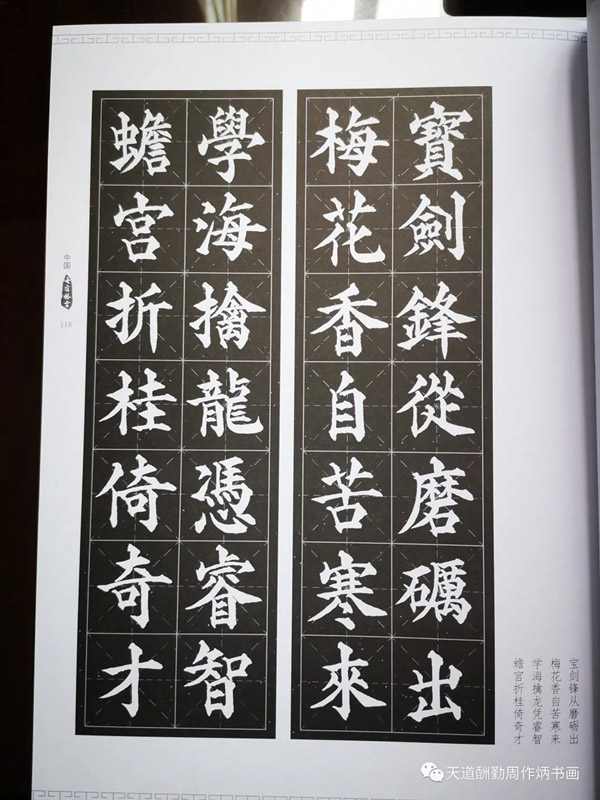 寶劍鋒從磨礪出
梅花香自苦寒來
學海擒龍憑睿智
蟾宮折桂倚奇才
宝剑锋从磨砺出
梅花香自苦寒来
学海擒龙凭睿智
蟾宫折桂倚奇才
中国
118
天道酬勤周作炳书画